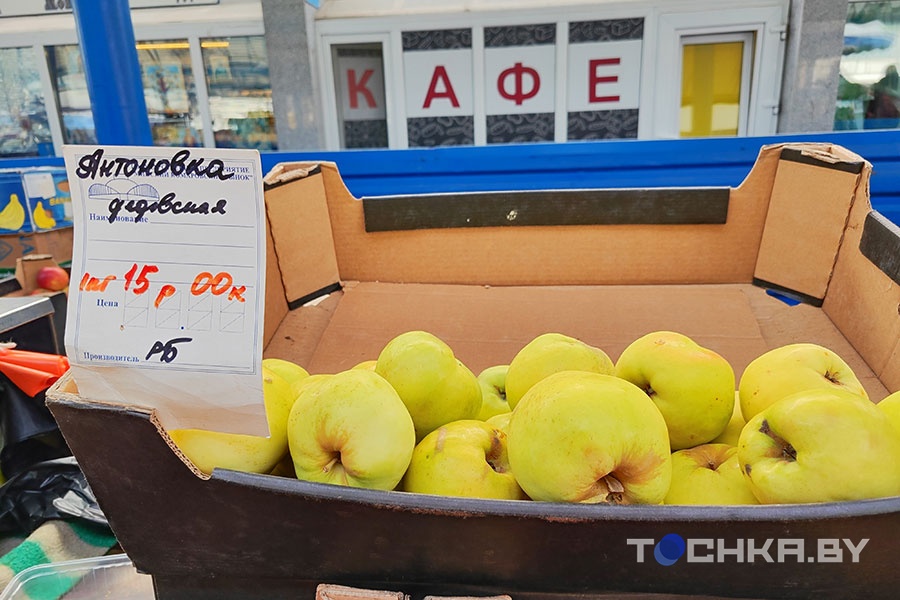 КАФЕ
Антоновка
дедовская
Наименование
1кг 15 р 00 к
Цена
Производитель РБ
TOCHKA.BY